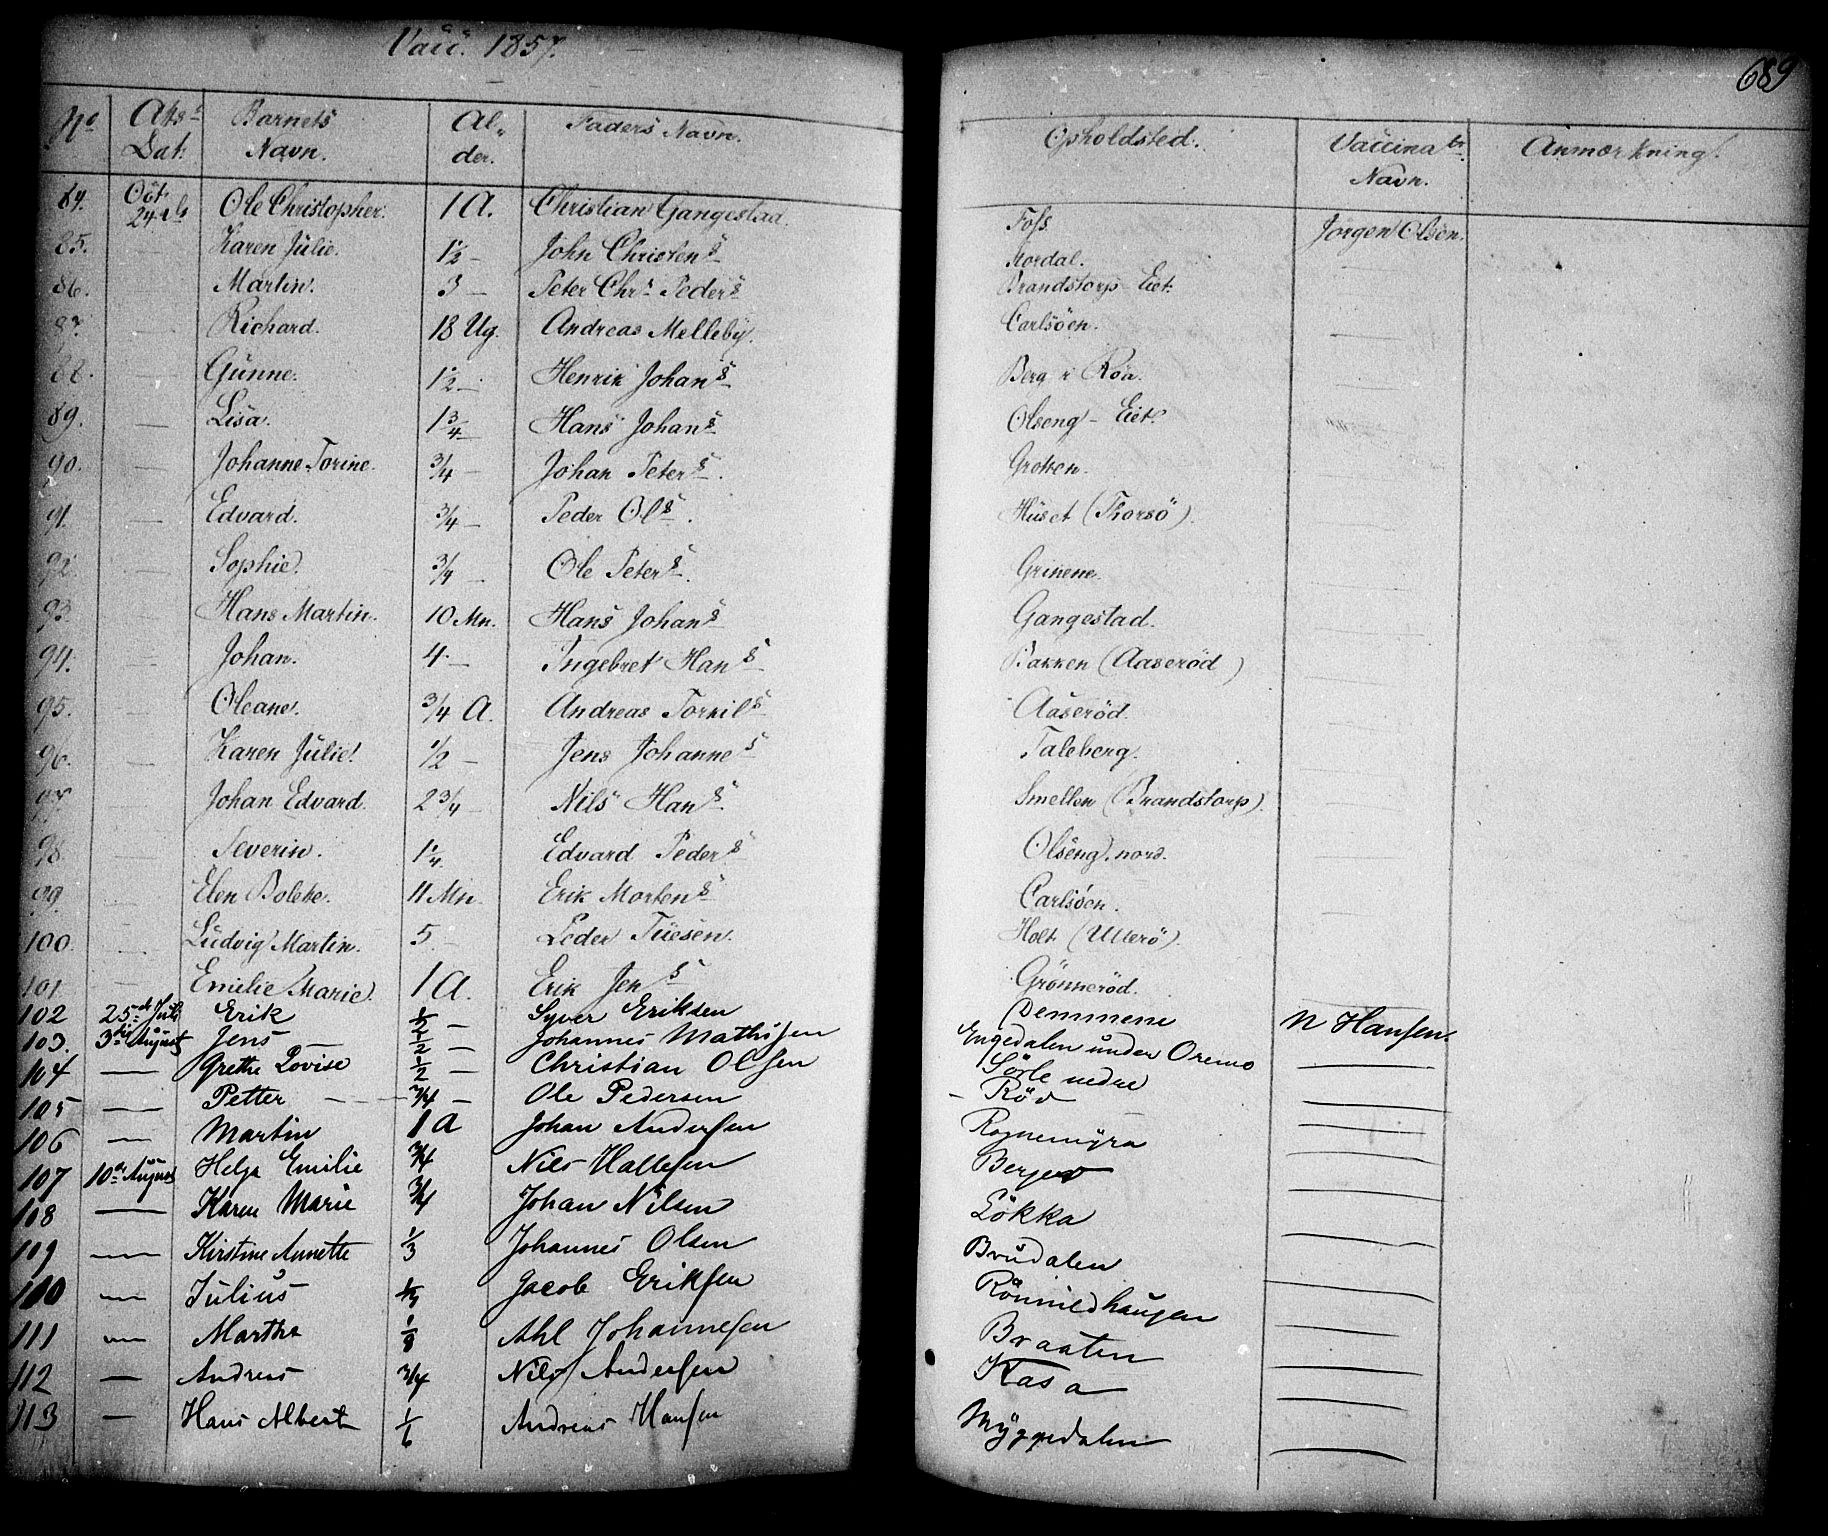 Vacc. 1857.
689
No Atts: Dat: Barnets Navn. Alder. Faders Navn. Opholdsted. Vaccinatr. Navn. Anmærkning.
84. Oct. 24de Ole Christopher. 1 A. Christian Gangestad. Foss. Jørgen Olsen.
85. — Karen Julie. 1½ — John Christens. Nordal. —
86. — Martin. 3 — Peter Chr. Peders. Brandstorp Eiet. —
87. — Richard. 18 Ug. Andreas Melleby. Carlsöen. —
88. — Gunne. 1½ — Henrik Johans. Berg i Röa. —
89. — Lisa. 1¾ — Hans Johans. Olseng - Eiet. —
90. — Johanne Torine. ¾ — Johan Peters. Groken. —
91. — Edvard. ¾ — Peder Ols. Huset (Thorsö). —
92. — Sophie. ¾ — Ole Peters. Grinene. —
93. — Hans Martin. 10 Mn. Hans Johans. Gangestad. —
94. — Johan. 4 — Ingebret Hans. Bakken (Aaseröd) —
95. — Oleane. ¾ A. Andreas Torkils. Aaseröd. —
96. — Karen Julie. ½ — Jens Johannes. Taleberg. —
97. — Johan Edvard. 2¾ — Nils Hans. Smellen (Brandstorp). —
98. — Severin. 1¼. Edvard Peders. Olseng, nord. —
99. — Elen Bolette. 11 Mn. Erik Mortens. Carlsöen. —
100. — Ludvig Martin. 5. — Peder Tüesen. Holt (Ullerö). —
101 — Emilie Marie. 1 A. Erik Jens. Grönneröd.
102 25de Juli Erik ½ — Syver Eriksen Demmene N Hansen.
103. 3die August Jens ½ — Johannes Mathisen Engedalen under Oremo —
104 — Grethe Lovise ½ — Christian Olsen Sörle nedre —
105 — Petter — ¾ — Ole Pedersen Röd —
106 — Martin 1 A Johan Andersen Rognemyra —
107 10de August Helga Emilie ¾ Nils Hallesen Berger —
108 — Karen Marie ¾ Johan Nilsen Lökka —
109 — Kirstine Annette ⅓ Johannes Olsen Brudalen —
110 — Julius Jacob Eriksen Rönnildhaugen —
111 — Marthe ⅛ Ahl Johannesen Braaten —
112 — Andreas ¾ Nils Andersen Kasa —
113 — Hans Albert 1/6 Andreas Hansen Myggedalen —